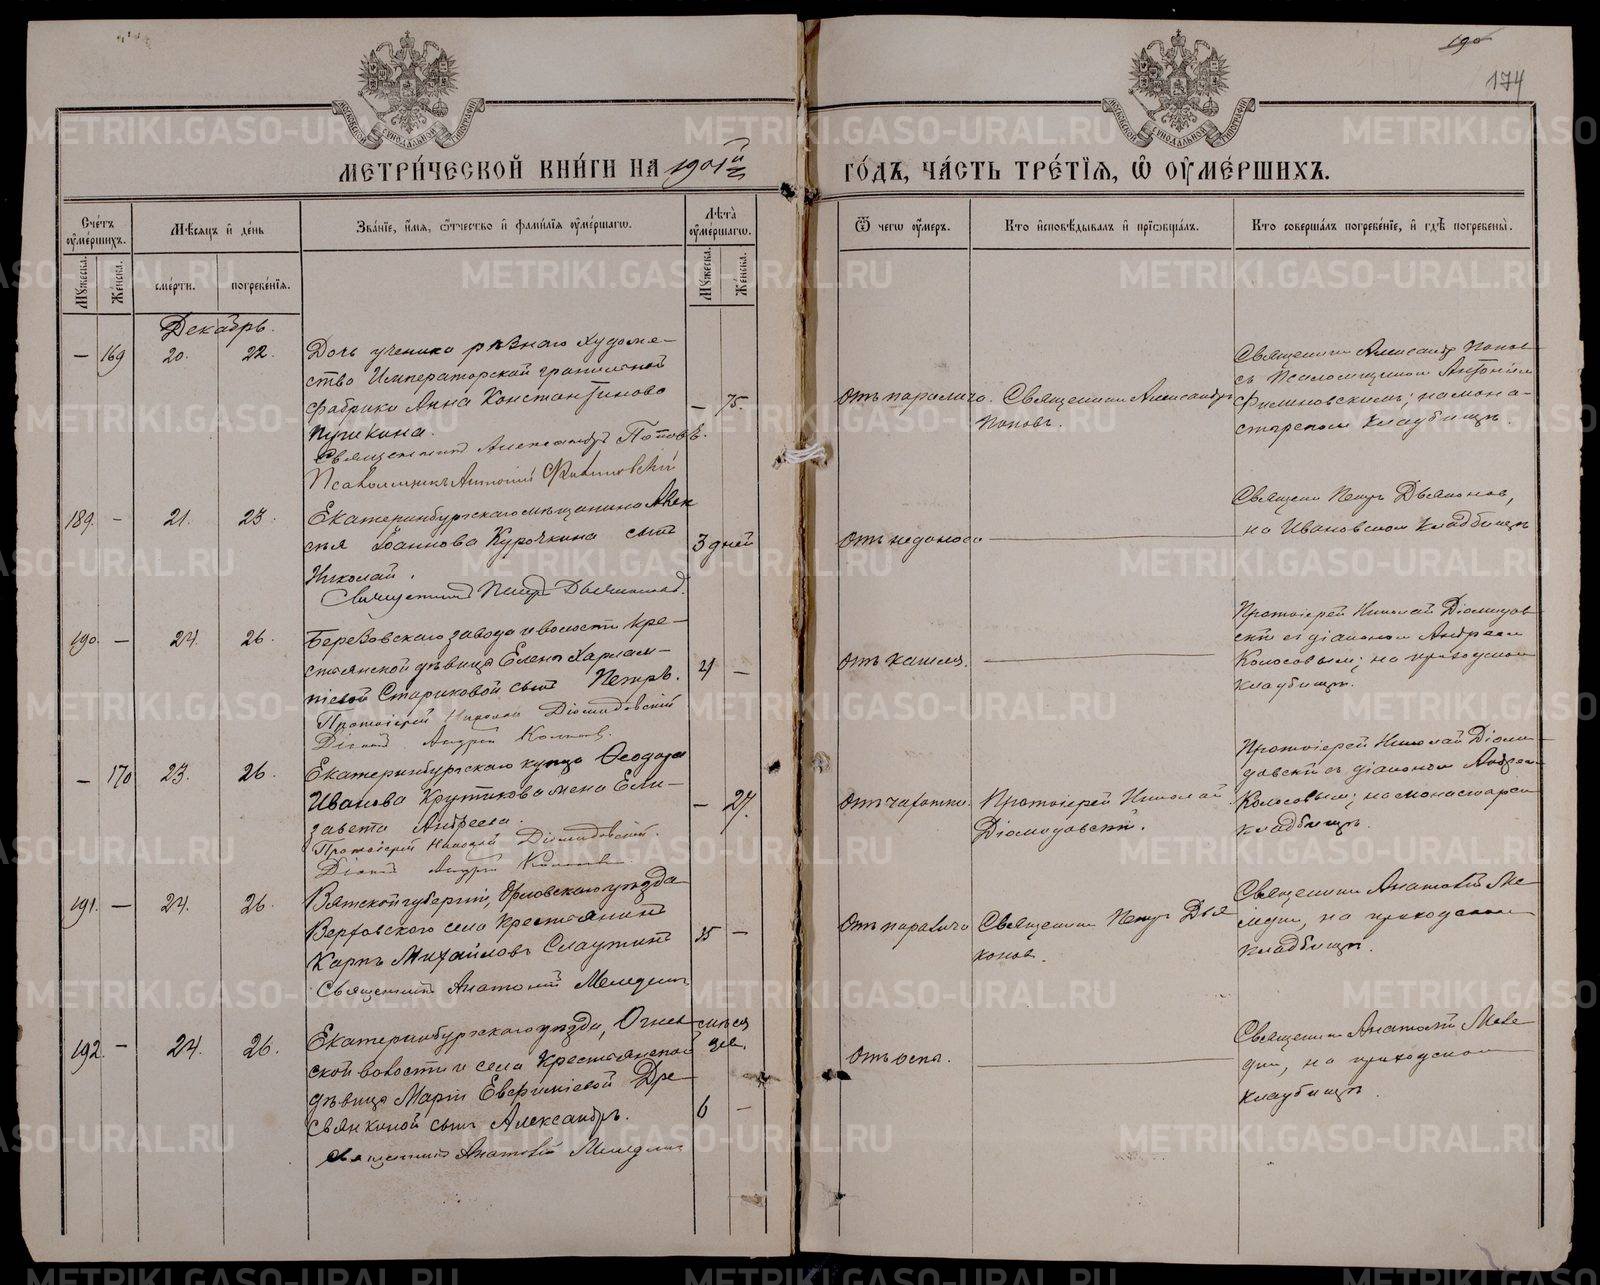 190
174
МОСКОВСКОЙ СѴНОДАЛЬНОЙ ТИПОГРАФІИ
МОСКОВСКОЙ СѴНОДАЛЬНОЙ ТИПОГРАФІИ
МЕТРИ́ЧЕСКОЙ КНИ́ГИ НА 1901й
ГО́ДЪ, ЧА́СТЬ ТРЕ́ТІЯ, Ѡ ОУМЕ́РШИХЪ.
Сче́тъ оумершихъ.
Мужеска.
Женска.
Мѣсяцъ и де́нь
сме́рти.
погребе́нія.
Зва́нїе, и́мя, ѻтчество и фами́лїя оуме́ршагѡ.
Лѣта̀ оуме́ршагѡ.
Мужеска.
Женска.
Ѿ чегѡ оу́меръ.
Кто и́сповѣдывалъ и прїѡбща́лъ.
Кто соверша́лъ погребе́нїе, и гдѣ погребены̀.
Декабрь.
— 169 20. 22.
Дочь ученика рѣзнаго художе-
ства Императорской гранильной
фабрики Анна Константинова
Пучкина.
— 75.
Священникъ Александръ Поповъ.
Псаломщикъ Антоній Филиновскій
Отъ паралича.
Священникъ Александръ
Поповъ.
Священникъ Александръ Поповъ
съ Псаломщикомъ Антоніемъ
Филиновскимъ; на мона-
стырскомъ кладбищѣ.
189. — 21. 23.
Екатеринбургскаго мѣщанина Алек
сѣя Іоаннова Курочкина сынъ
Николай.
3 дней
Священникъ Петръ Дьяконовъ.
Отъ недоноса
Священ. Петръ Дьяконовъ,
на Ивановскомъ кладбищѣ
190. — 24. 26.
Березовскаго завода и волости кре-
стьянской дѣвицы Елены Харлам-
піевой Стариковой сынъ Петръ.
21 —
Протоіерей Николай Діомидовскій
Діаконъ Андрей Колосовъ.
Отъ кашля.
Протоіерей Николай Діомидов-
скій съ діакономъ Андреемъ
Колосовымъ; на приходскомъ
кладбищѣ.
— 170 23. 26.
Екатеринбургскаго купца Ѳеодора
Иванова Крутикова жена Ели-
завета Андреева.
— 27.
Протоіерей Николай Діомидовскій.
Діаконъ Андрей Колосовъ.
Отъ чахотки.
Протоіерей Николай
Діомидовскій.
Протоіерей Николай Діоми-
довскій съ діакономъ Андреемъ
Колосовымъ; на монастырск.
кладбищѣ.
191. — 24. 26.
Вятской губерніи, Орловскаго уѣзда
Верховского села крестьянинъ
Карпъ Михайловъ Слаутинъ
35 —
Священникъ Анатолій Мелединъ
Отъ паралича
Священникъ Петръ Дья
коновъ.
Священникъ Анатолій Ме
лединъ, на приходскомъ
кладбищѣ.
192. — 24. 26.
Екатеринбургскаго уѣзда, Огнев-
ской волости и села крестьянской
дѣвицы Маріи Евфиміевой Дре
свянкиной сынъ Александръ.
мѣся
цев.
6 —
Священникъ Анатолій Мелединъ
Отъ оспы.
Священникъ Анатолій Меле
динъ, на приходскомъ
кладбищѣ.
METRIKI.GASO-URAL.RU